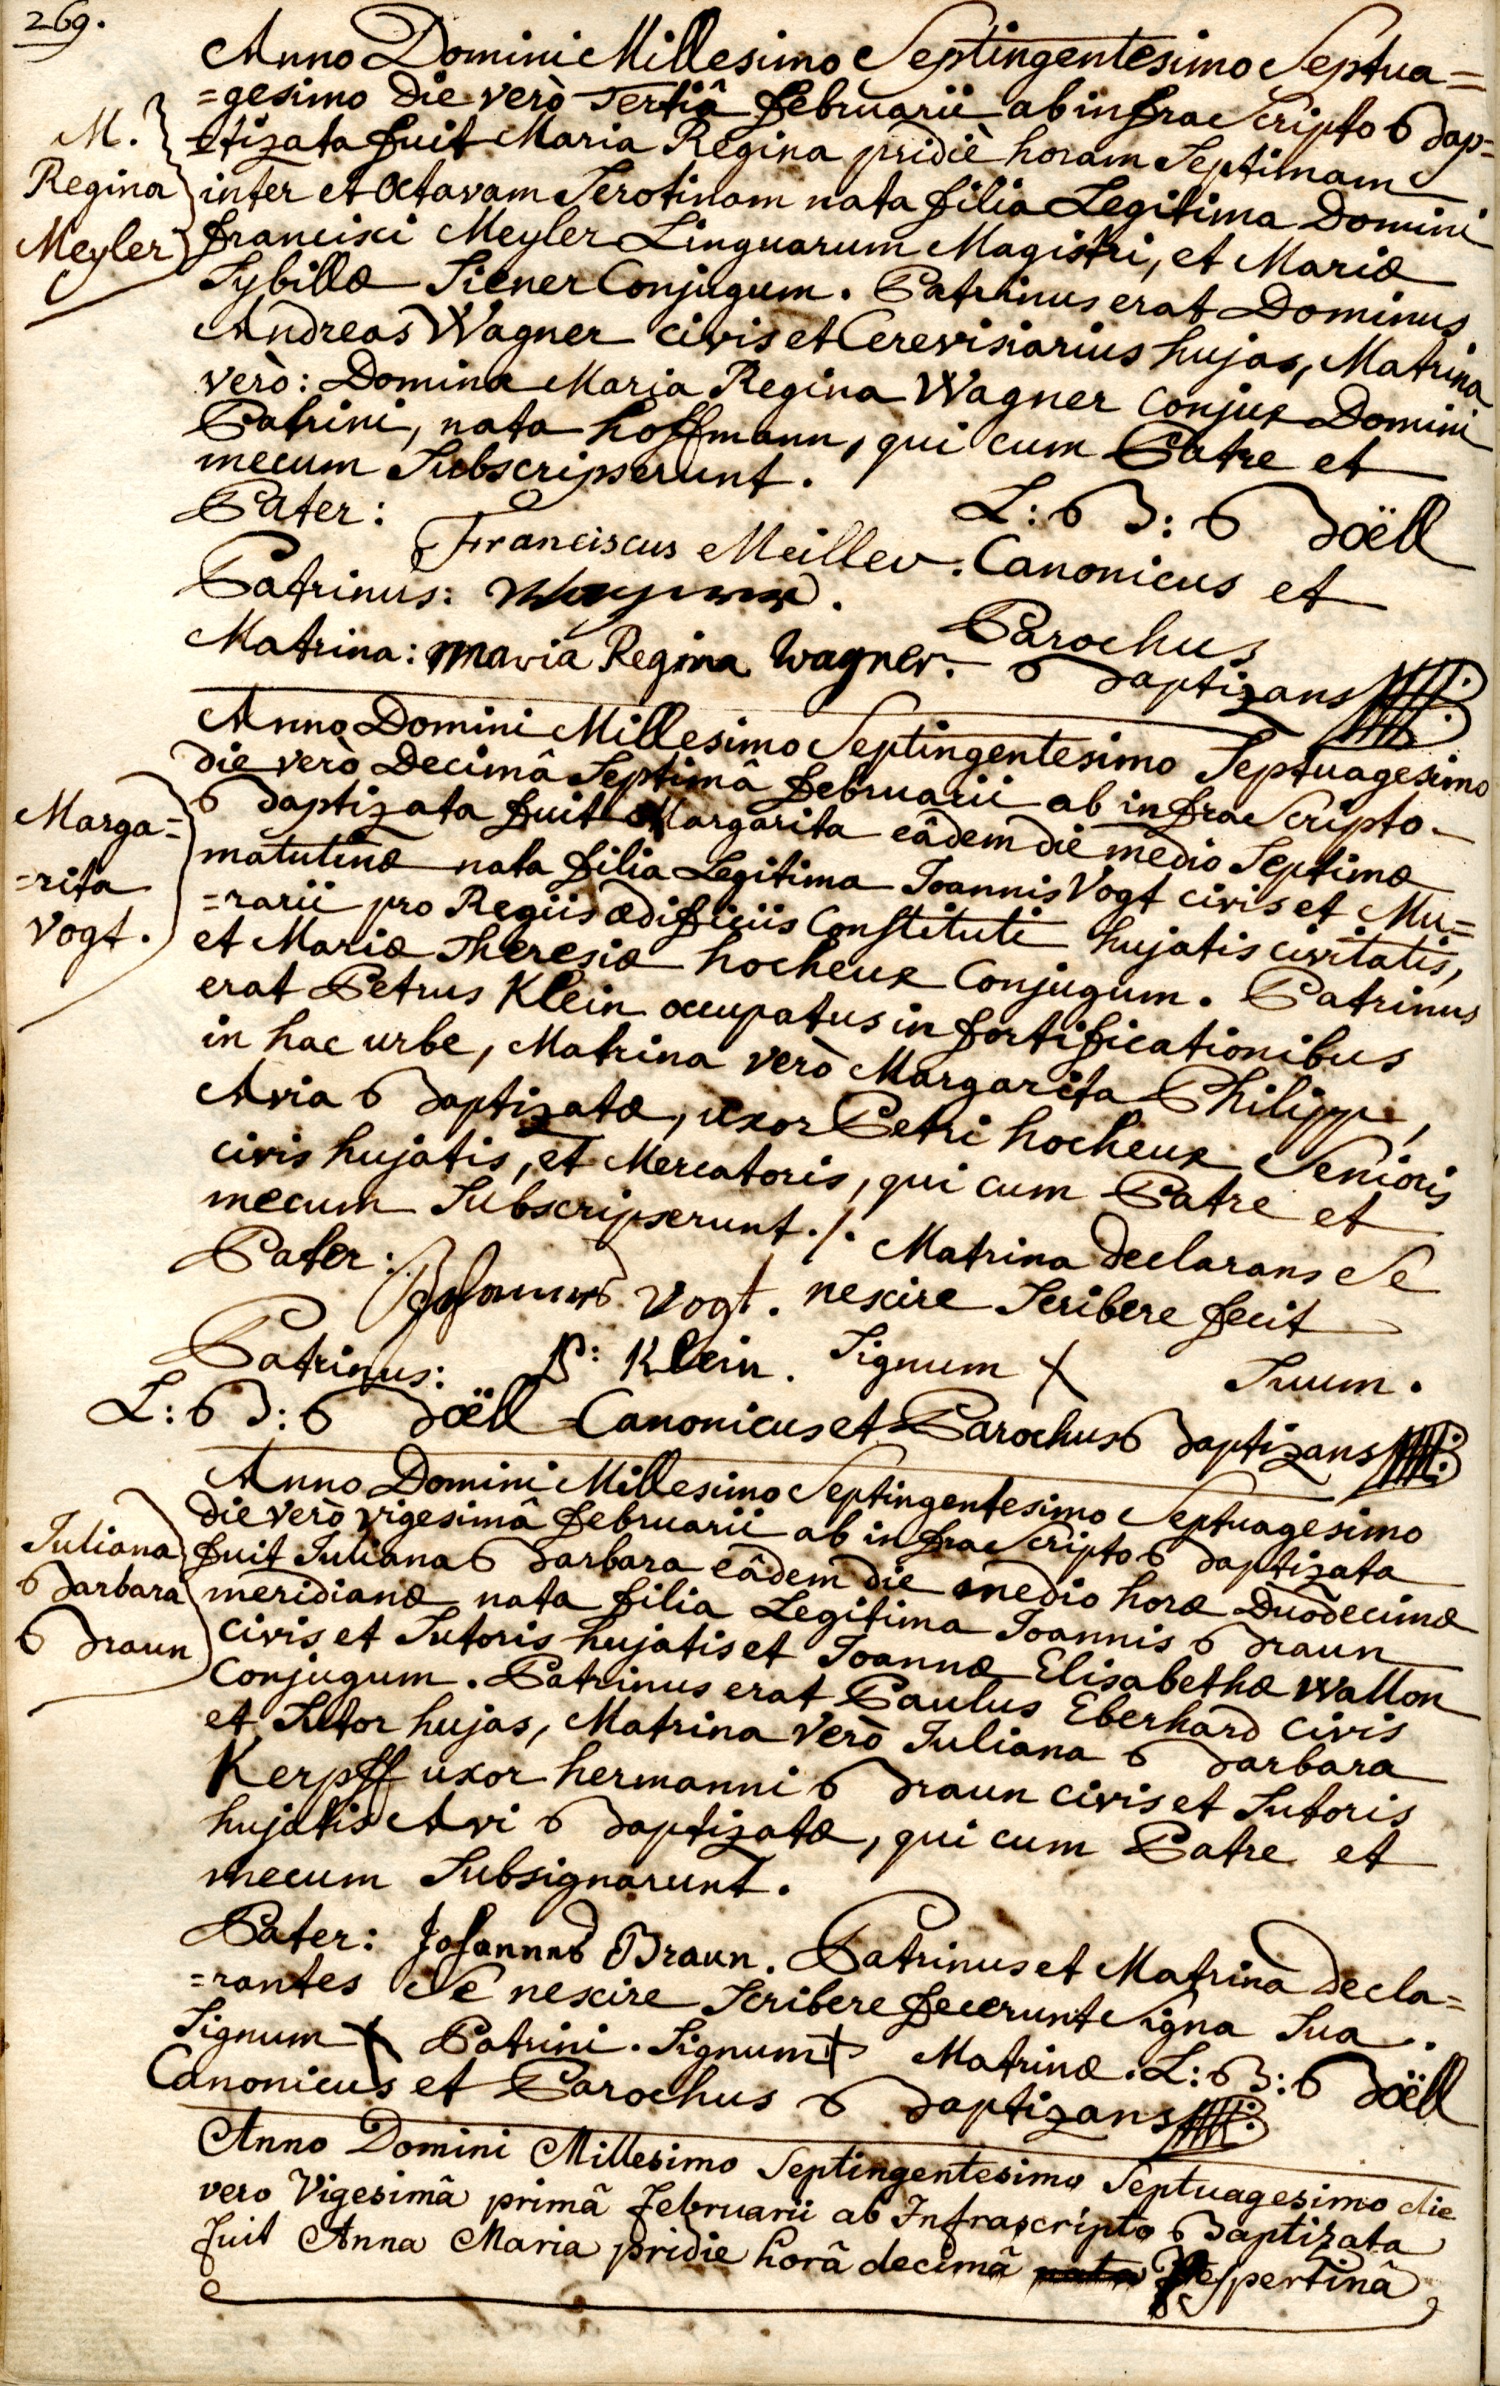 269.
Anno Domini Millesimo Septingentesimo Septua=
=gesimo die verò Tertiâ februarii ab infra Scripto Bap=
M.
=tizata fuit Maria Regina pridiè horam Septimam
Regina
inter et octavam Serotinam nata filia Legitima Domini
Meyler
francisci Meyler Linguarum Magistri, et Mariæ
Sybillæ Siener Conjugum. Patrinus erat Dominus
Andreas Wagner civis et Cerevisiarius hujas, Matrina
verò: Domina Maria Regina Wagner conjux Domini
Patrini, nata hoffmann, qui cum Patre et
mecum Subscripserunt.
L: B: Boëll
Pater: Franciscus Meiller. Canonicus et
Patrinus: Wagner.
Parochus
Matrina: maria Regina wagner. Baptizans
Anno Domini Millesimo Septingentesimo Septuagesimo
die verò Decimâ Septimâ februarii ab infra Scripto
Marga=
Baptizata fuit Margarita eâdem die medio Septimæ
=rita
matutinæ nata filia Legitima Joannis Vogt civis et Mu=
Vogt.
=rarii pro Regiis ædificiis Constituti hujatis civitatis,
et Mariæ Theresiæ hocheux Conjugum. Patrinus
erat Petrus Klein occupatus in fortificationibus
in hac urbe, Matrina verò Margarita Philippi,
Avia Baptizatæ, uxor Petri hocheux Senioris
civis hujatis, et Mercatoris, qui cum Patre et
mecum Subscripserunt./. Matrina declarans Se
Pater: Johannes Vogt. nescire Scribere fecit
Patrinus: P: Klein. Signum X Suum.
L: B: Boëll Canonicus et Parochus Baptizans
Anno Domini Millesimo Septingentesimo Septuagesimo
die verò vigesimâ februarii ab infra Scripto Baptizata
Juliana
fuit Juliana Barbara eâdem die medio horæ Duodecimæ
Barbara
meridianæ nata filia Legitima Joannis Braun
Braun
civis et Sutoris hujatis et Joannæ Elisabethæ Wallon
Conjugum. Patrinus erat Paulus Eberhard civis
et Sutor hujas, Matrina verò Juliana Barbara
Kerpff uxor hermanni Braun civis et Sutoris
hujatis Avi Baptizatæ, qui cum Patre et
mecum Subsignarunt.
Pater: Johannes Braun. Patrinus et Matrina decla=
=rantes Se nescire Scribere fecerunt Signa Sua.
Signum X Patrini. Signum + Matrinæ. L: B: Boëll
Canonicus et Parochus Baptizans
Anno Domini Millesimo Septingentesimo Septuagesimo die
vero Vigesimâ primâ februarii ab Infrascripto Baptizata
fuit Anna Maria pridie horâ decimâ nata Vespertinâ